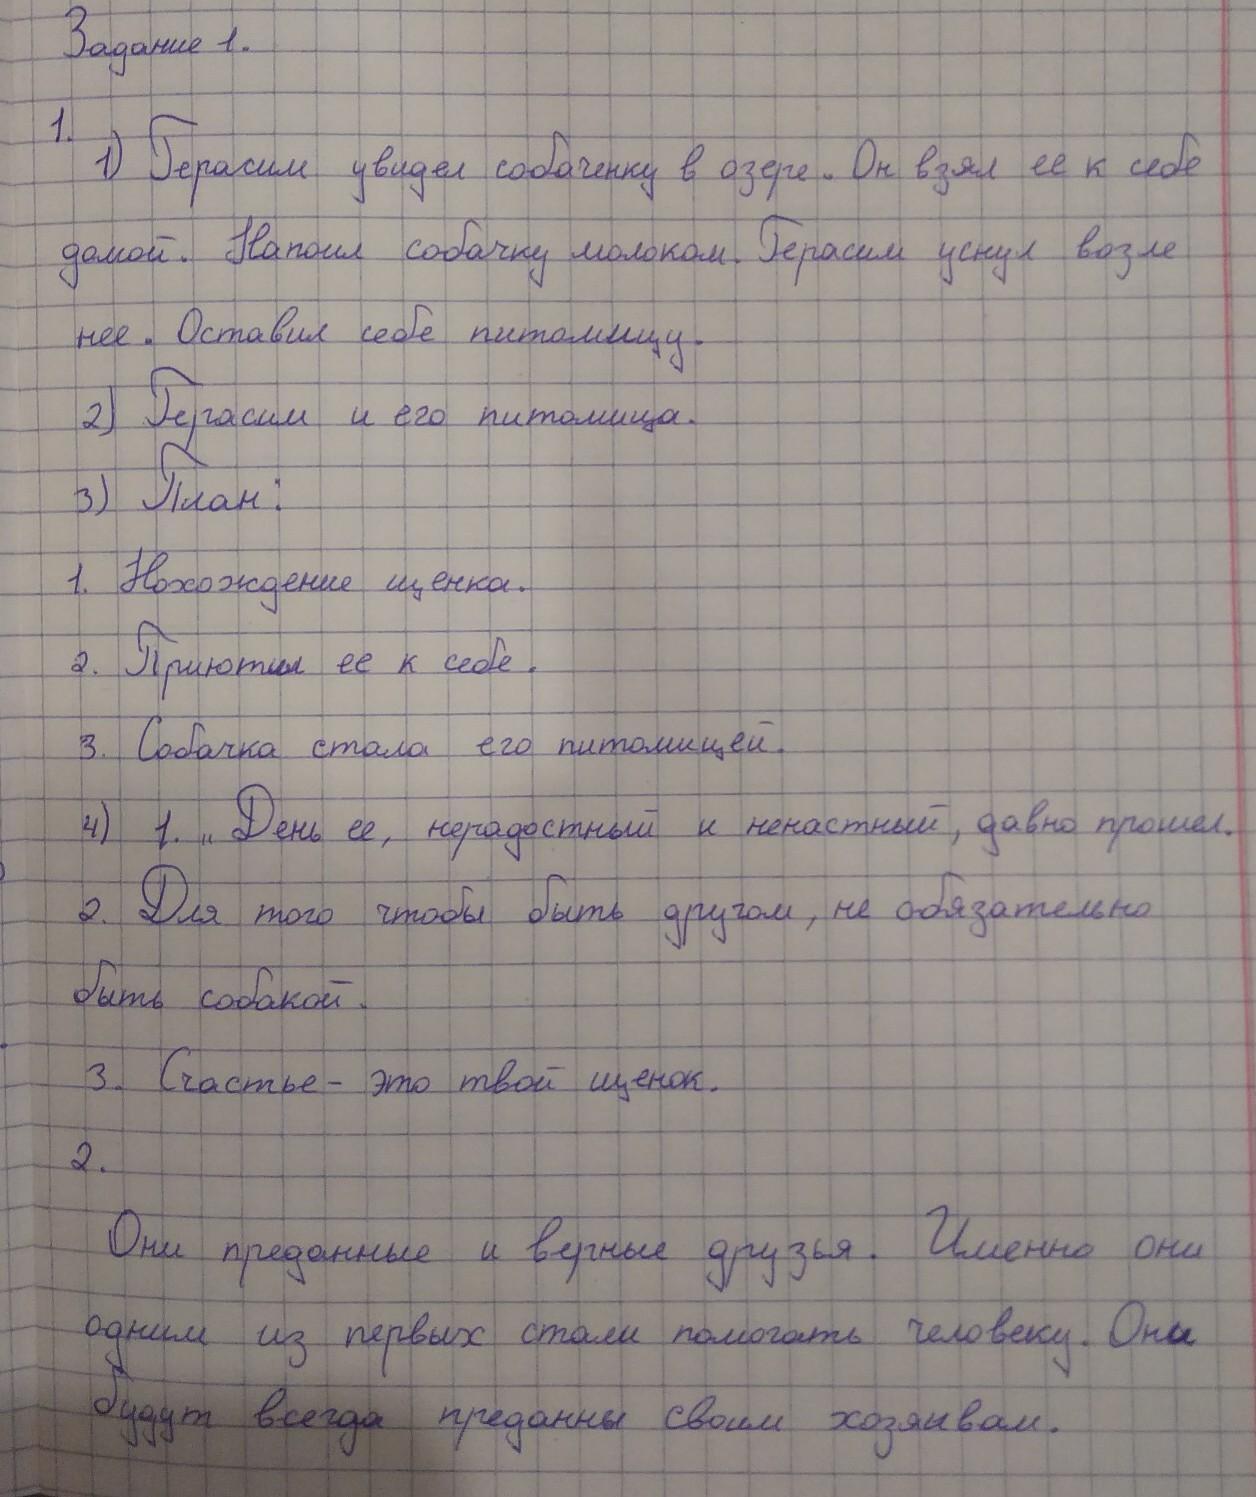 Задание 1.
1.
1) Герасим увидел собаченку в озере. Он взял ее к себе
домой. Напоил собачку молоком. Герасим уснул возле
нее. Оставил себе питомицу.
2) Герасим и его питомица.
3) План:
1. Нохождение щенка.
2. Приютил ее к себе.
3. Собачка стала его питомицей.
4) 1. „День ее, нерадостный и ненастный, давно прошел.
2. Для того чтобы быть другом, не обязательно
быть собакой.
3. Счастье - это твой щенок.
2.
Они преданные и верные друзья. Именно они
одним из первых стали помогать человеку. Они
будут всегда преданны своим хозяивам.